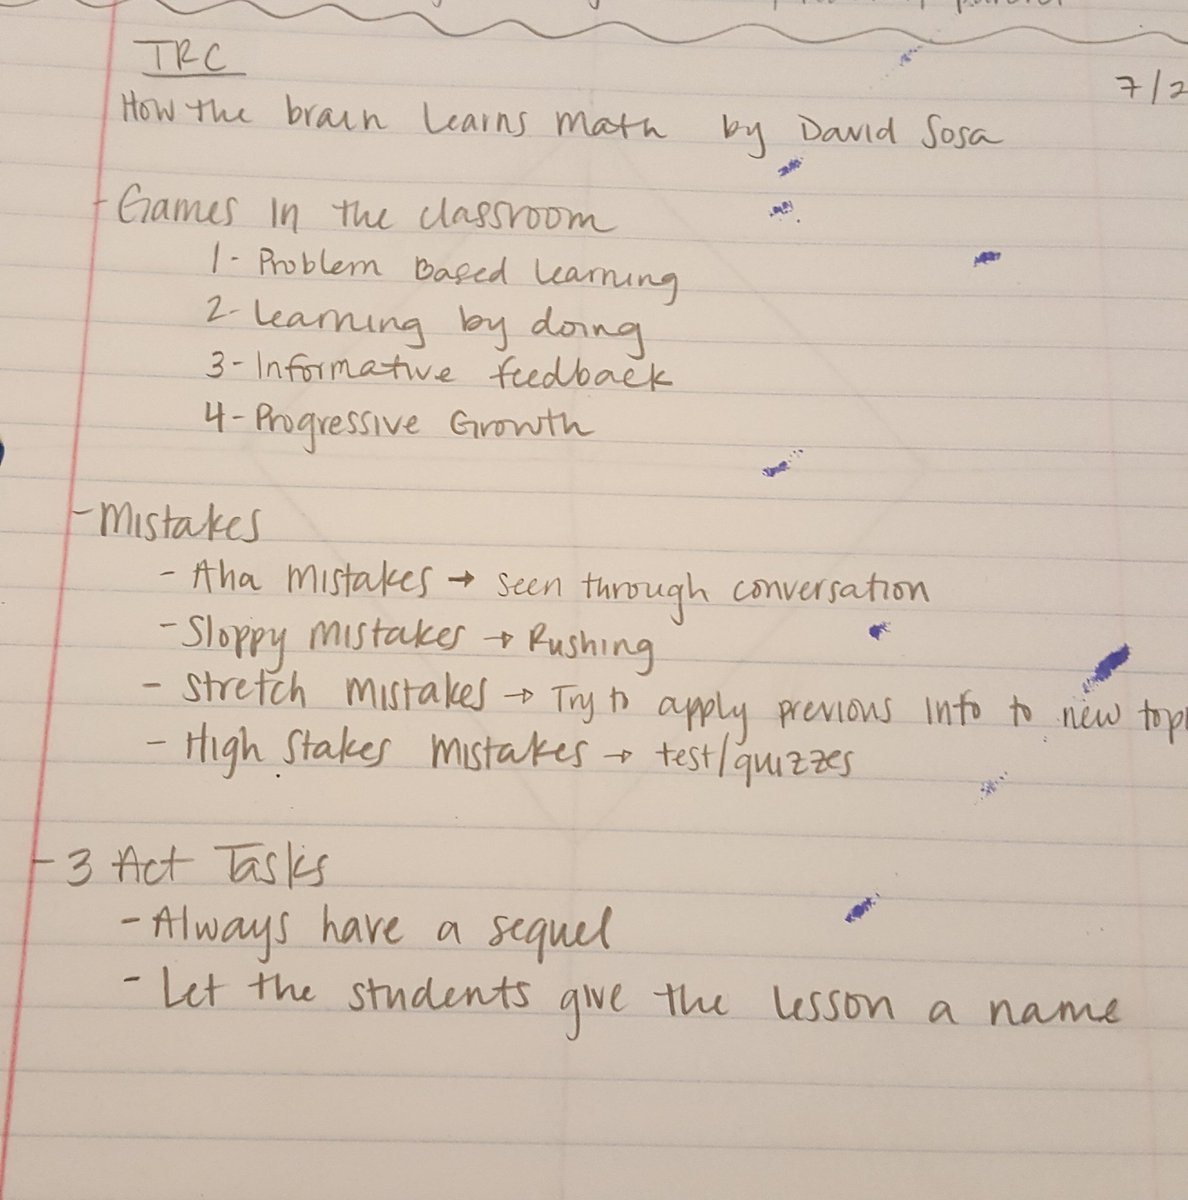 TRC
7/2
How the brain learns math by David Sosa
- Games in the classroom
1- Problem Based Learning
2- Learning by doing
3- Informative feedback
4- Progressive Growth
- Mistakes
- Aha mistakes → seen through conversation
- Sloppy mistakes → Rushing
- Stretch mistakes → Try to apply previous info to new topi
- High stakes mistakes → test/quizzes
- 3 Act Tasks
- Always have a sequel
- Let the students give the lesson a name